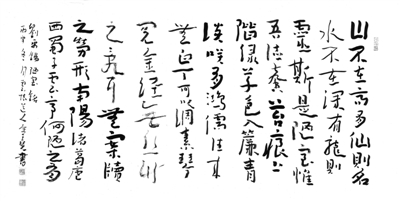 山不在高有仙則名
水不在深有龍則
靈斯是陋室惟
吾德馨苔痕上
階綠草色入簾青
談咲有鴻儒往来
無白丁可以調素琴
閱金經無絲竹
之亂耳無案牘
之勞形南陽諸葛廬
西蜀子雲亭何陋之有
劉禹錫陋室銘
書